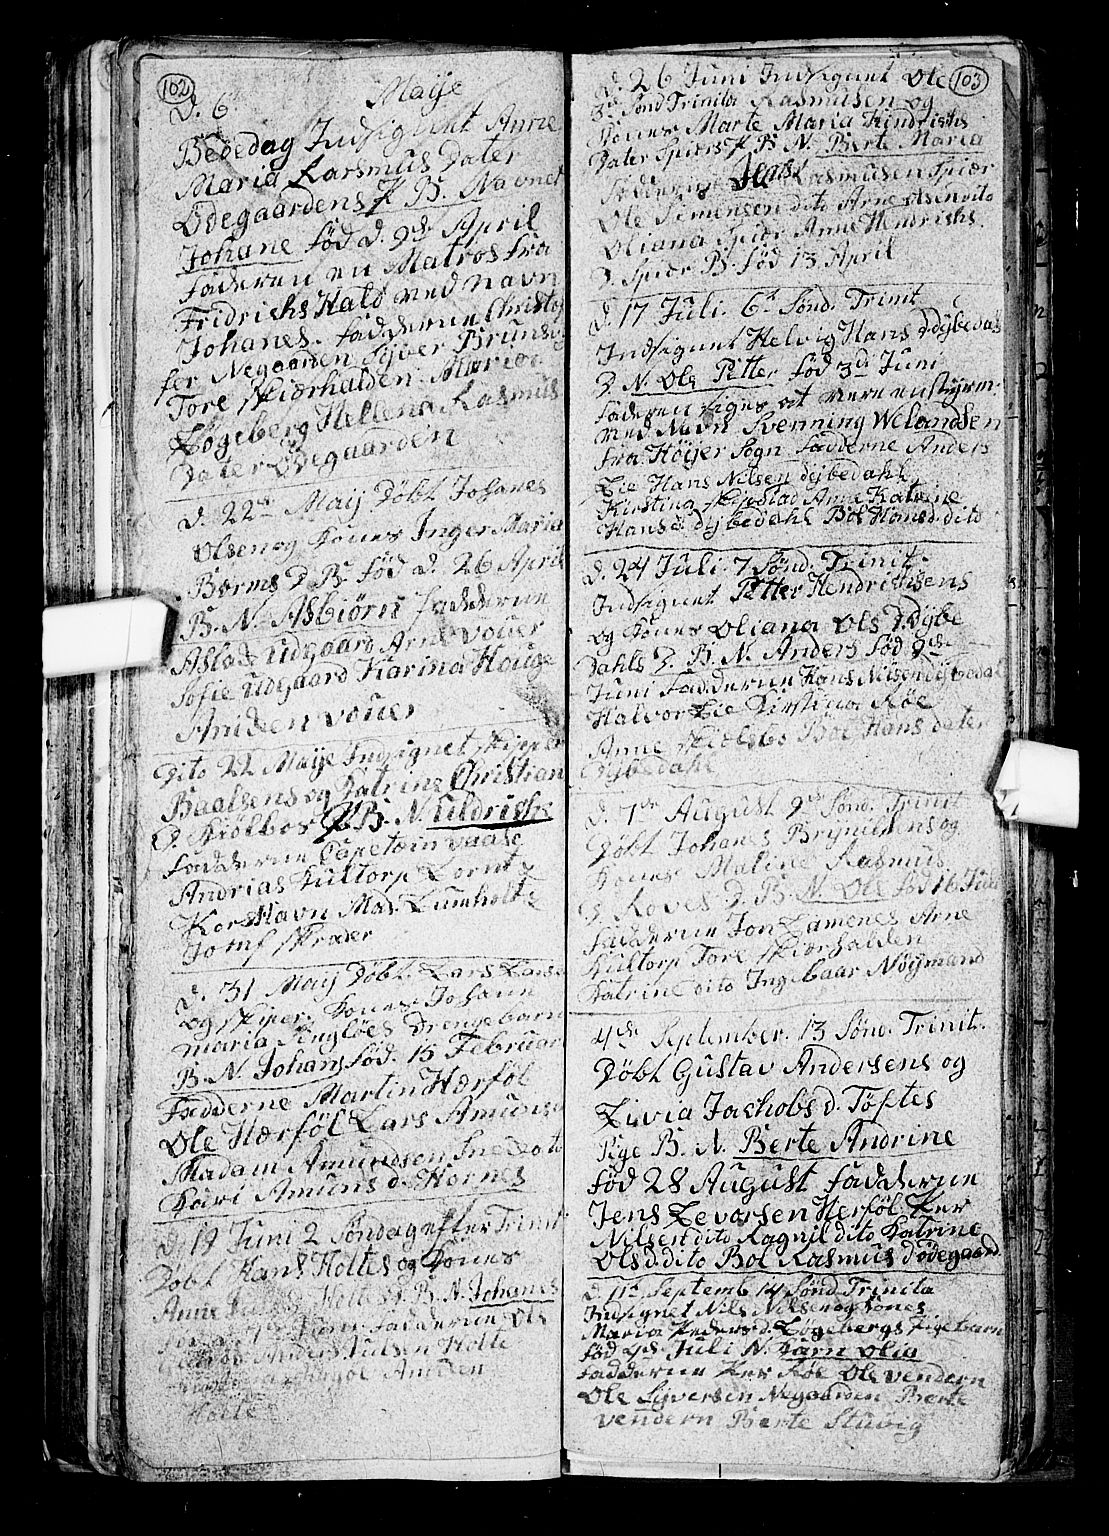 102
D. 6 Maije
Bededag Indsignet Anne
Maria Larsmus Dater
Ødegaardens P B. Navnet
Johane fød d. 9de April
faderen en Matros fra
Fridrichs Hald med navn
Johanes. fadderne Christo
fer Negaarden Syver Brunsv
Tore Skiærhalden Maria
Løgeberg Hellena Rasmus
Dater Ødegaarden
d. 22de Maij Døbt Johanes
Olsen og Kones Inger Maria
Børms D. B. fød d. 26 April
B. N. Asbiørn fadderne
Aslad Udgaard Arne vouer
Sofie Udgaard Karina Houge
Amden vouer
Dito 22 Maije Indsignet skipper
Baalsens og Katrine Christian
D. Kiølbos P B. N. Uldriche
fadderne Capetein vaale
Andrias Kultorp Lornt
Kors Havn Mad. Lumholtz
Josef skrader
d. 31 Maij Døbt Lars Larse
og skiper Kones Johann
Maria Engløes Drenge barn
B. N. Johan fød. 15 Februar
Fadderne Martin Hærføl
Ole Hærføl Lars Amunse
Madam Amundsen
Kari Amuns d. Hornes
d. 19 Juni 2 Søndag efter Trinit
Døbt Hans Holtes og Kones
Anne D. Holte B. N. Johanes
fadderne Ole
Anders Julsen Holte
Amden
Holte
103
d. 26 Juni Indsignet Ole
3de Sønd Trinita Rasmusen og
Kones Marte Maria Hindrichs
Dater Spiers P B. N. Berte Maria
Fadderne Hans Rasmusen Spier
Ole Simensen dito Arne olsen dito
Oliana Spier Anne Hendrichs
D. Spier B. fød 13 April
d. 17 Juli. 6te Sønd. Trinit
Indsignet Helvig Hans D Dybedals
D N. Ole Petter fød 3de Juni
faderen siges at være en styrm.
med Navn Svenning Welandsen
fra Høijer Sogn fadderne Anders
Lie Hans Nilsen dybedahl
Kirstina skipstad Anne Katrine
Hans d. Dybedahl Bol Hans d. dito
d. 24 Juli. 7 Sønd. Trinit.
Indsignet Petter Hendrichsens
og Kones Oliana Ols D Dybe
Dahls D. B. N. Anders fød 9de
Juni Fadderne Hans Nilsen dybedal
Halvor Lie Kirstina Røe
Anne Kiølbos Bol Hans dater
Dybedahl
d. 7de August 9de Sønd. Trini
Døbt Johanes Brynilsens og
Kones Maline Rasmus
D. Roves D. B. N. Ole fød 16 Juli
Fadderne Jon Lamenes Arne
Kultorp Tore skiørhalden
Katrine dito Ingebaar Nøijmand
4de September. 13 Sønd. Trinit.
Døbt Gustav Andersens og
Livia Jachobs d. Tøftes
Pige B. N. Berte Andrine
fød 28 August fadderne
Jens Levorsen Herføl Per
Nilsen dito Ragnil dito Katrine
Ols d. dito Bol Rasmus d Ødegaard
d. 11te Septemb 14 Sønd Trinita
Indsignet Nils Nilsen og Kones
Maria Peders d. Løgebergs Pige barn
fød 4de Juli N. Karn Olia
fadderne Per Røe Ole vendern
Ole Syversen Negaarden Berte
vendern Berte Stuvig